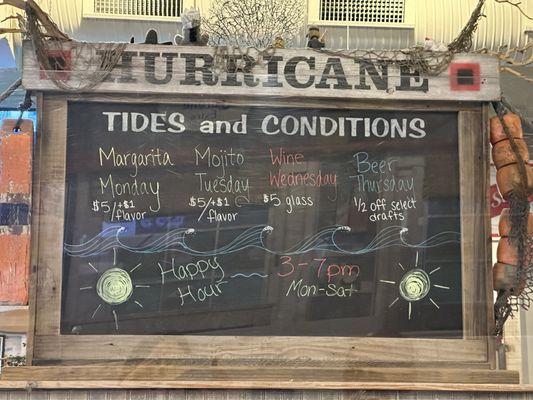 HURRICANE
TIDES and CONDITIONS
Margarita
Monday
$5/+$1
/flavor
Mojito
Tuesday
$5/+$1
/flavor
Wine
Wednesday
$5 glass
Beer
Thursday
1/2 off select
drafts
Happy
Hour
3-7pm
Mon-Sat